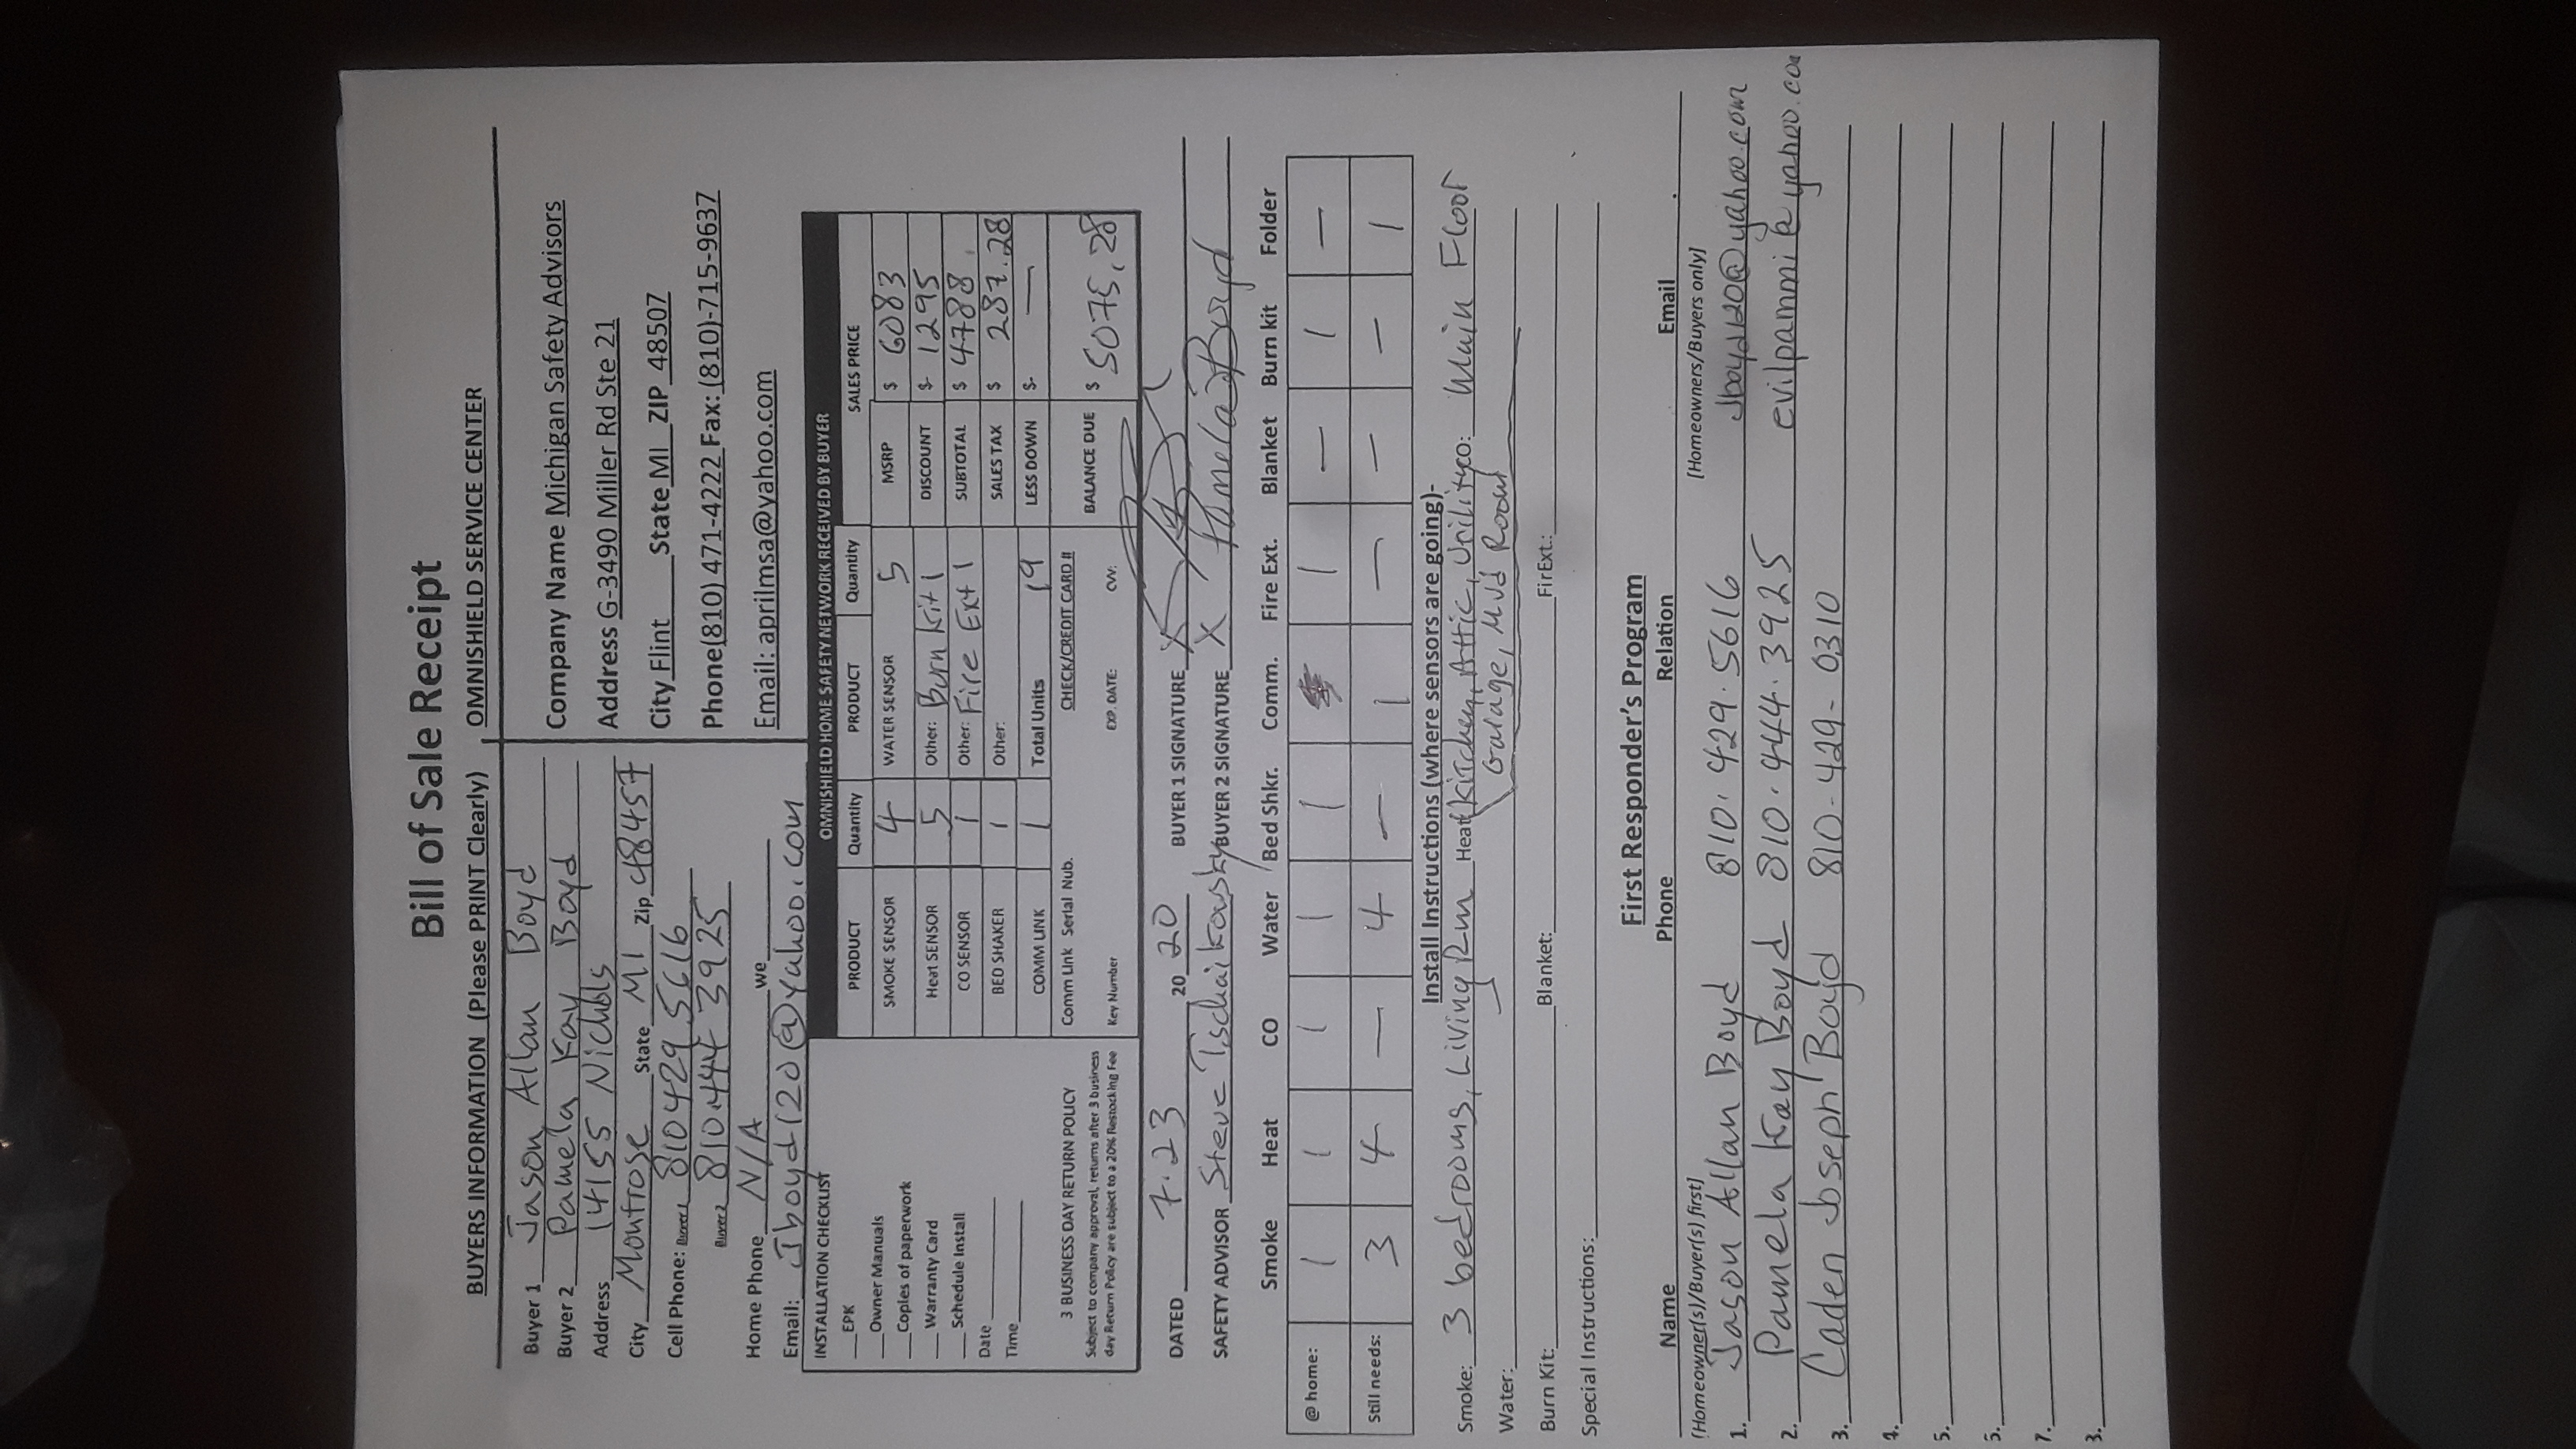 Bill of Sale Receipt
BUYERS INFORMATION (Please PRINT Clearly)
Buyer 1 Jason Allan Boyd
Buyer 2 Pamela Kay Boyd
Address 14155 Nichols
City Montrose State MI Zip 48457
Cell Phone: Buyer1 810 429 5616
Buyer2 810.444 3925
Home Phone N/A we
Email: Jboyd120@yahoo.com
OMNISHIELD SERVICE CENTER
Company Name Michigan Safety Advisors
Address G-3490 Miller Rd Ste 21
City Flint State MI ZIP 48507
Phone(810) 471-4222 Fax: (810)-715-9637
Email: aprilmsa@yahoo.com
INSTALLATION CHECKLIST
EPK
Owner Manuals
Copies of paperwork
Warranty Card
Schedule Install
Date
Time
3 BUSINESS DAY RETURN POLICY
Subject to company approval, returns after 3 business
day Return Policy are subject to a 20% Restocking Fee
OMNISHIELD HOME SAFETY NETWORK RECEIVED BY BUYER
PRODUCT Quantity PRODUCT Quantity SALES PRICE
SMOKE SENSOR 4 WATER SENSOR 5 MSRP $ 6083
Heat SENSOR 5 Other: Burn Kit 1 DISCOUNT $- 1295
CO SENSOR 1 Other: Fire Ext 1 SUBTOTAL $ 4788.
BED SHAKER 1 Other: SALES TAX $ 287.28
COMM LINK 1 Total Units 19 LESS DOWN $- —
Comm Link Serial Nub. CHECK/CREDIT CARD # BALANCE DUE $ 5075.28
Key Number EXP. DATE: CVV:
DATED 7.23 20 20 BUYER 1 SIGNATURE X
SAFETY ADVISOR Steve Tschaikowsky BUYER 2 SIGNATURE X Pamela Boyd
Smoke Heat CO Water Bed Shkr. Comm. Fire Ext. Blanket Burn kit Folder
@ home: 1 1 1 1 1 1 — 1 —
Still needs: 3 4 — 4 — 1 — — — 1
Install Instructions (where sensors are going)-
Smoke: 3 bedrooms, Living Rm Heat: Kitchen, Attic, Utility CO: Main Floor
Garage, Mud Room
Water:
Burn Kit: Blanket: FirExt.:
Special Instructions:
First Responder's Program
Name Phone Relation Email
(Homeowner(s)/Buyer(s) first) [Homeowners/Buyers only]
1. Jason Allan Boyd 810.429.5616 Jboyd120@yahoo.com
2. Pamela Kay Boyd 810.444.3925
3. Caden Joseph Boyd 810-429-0310
4.
5.
5.
7.
3.